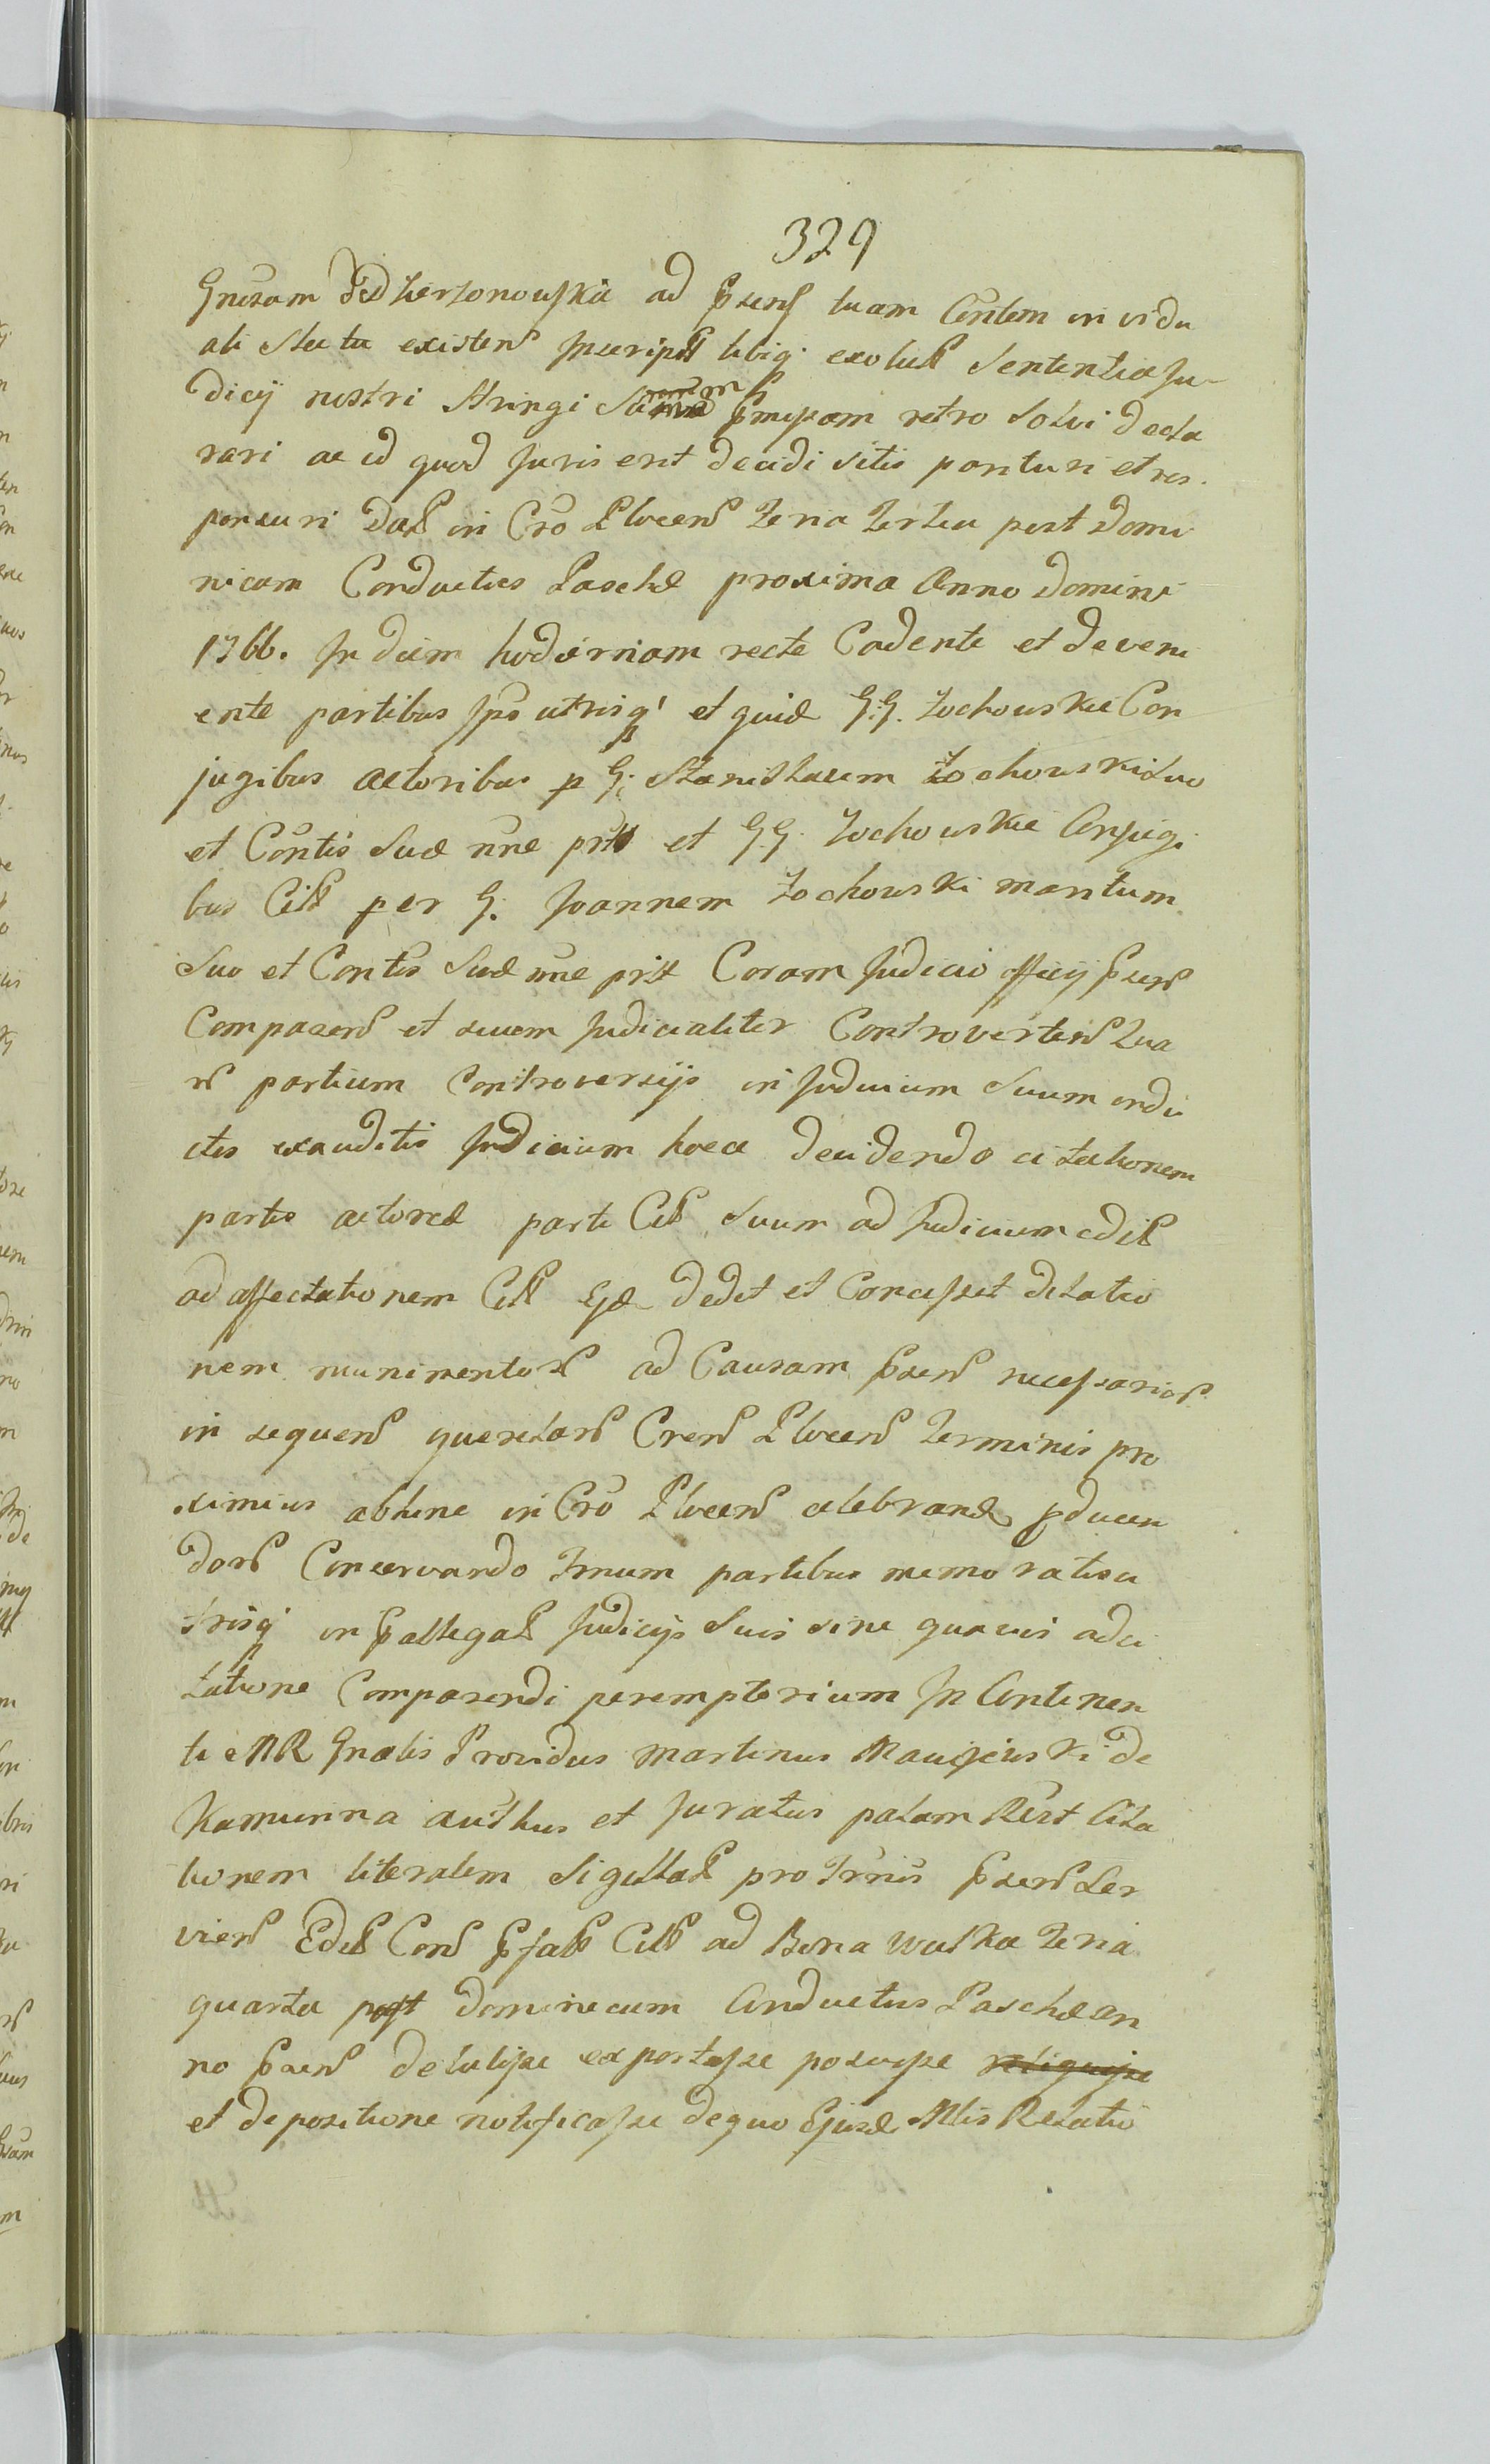 329
Gnosam Podhersonouska ad psens tuam Contem in vidu
ali statu existens Inscripts tibiq exolut Sententia Ju-
dicij nostri Stringi pmissam retro Solvi decla
rari ac id quod Juris erit decidi sitis parituri et res.
ponsuri Dat in Cro Plocens feria tertia post Domi
nicam Conductus Paschæ proxima Anno Domini
1766. In diem hodiernam recte Cadente et deveni
ente partibus Ipo utrisq et quid G:G. Zochouskie Con
jugibus actoribus p G: Stanislaum Zochouski suo
et Contis Suæ nne prtt et G:G. Zochouskie Conjugi
bus Citt per G. Joannem Zochouski maritum
Suo et Contis Suæ nne prtt Coram Judicio officij psens
Comparens et suam Judicialiter Controvertens Qua
rs partium Controversijs in Judicium Suum indu
ctis exauditis Judicium hocce decidendo citationem
partis actoreæ parte Citt Suum ad Judicium edit
ad affectationem Citt Ejd dedit et Concessit dilatio
nem munimentors ad Causam psens necessarior
in sequens querelars Crens Plocens Terminis pro
ximius abhinc in Cro Plocens celebrand pducen
dors Conservando Trnum partibus memoratis u
trisq in pallegat Judicijs Suis sine quavis adci
tatione Comparendi peremptorium In Continen
ti MR Gnalis Providus Martinus de
Kamunna authus et Juratus palam Rert Cita
tionem literalem Sigillat pro Trnis psens Ser
viens Edit Cons pfat Citt ad Bona Wulka feria
quarta post dominicam Conductus Paschæ An
no psens detulisse exportasse posuisse reliquisse
et depositione notificasse de quo Ejusd Mlis Relatio